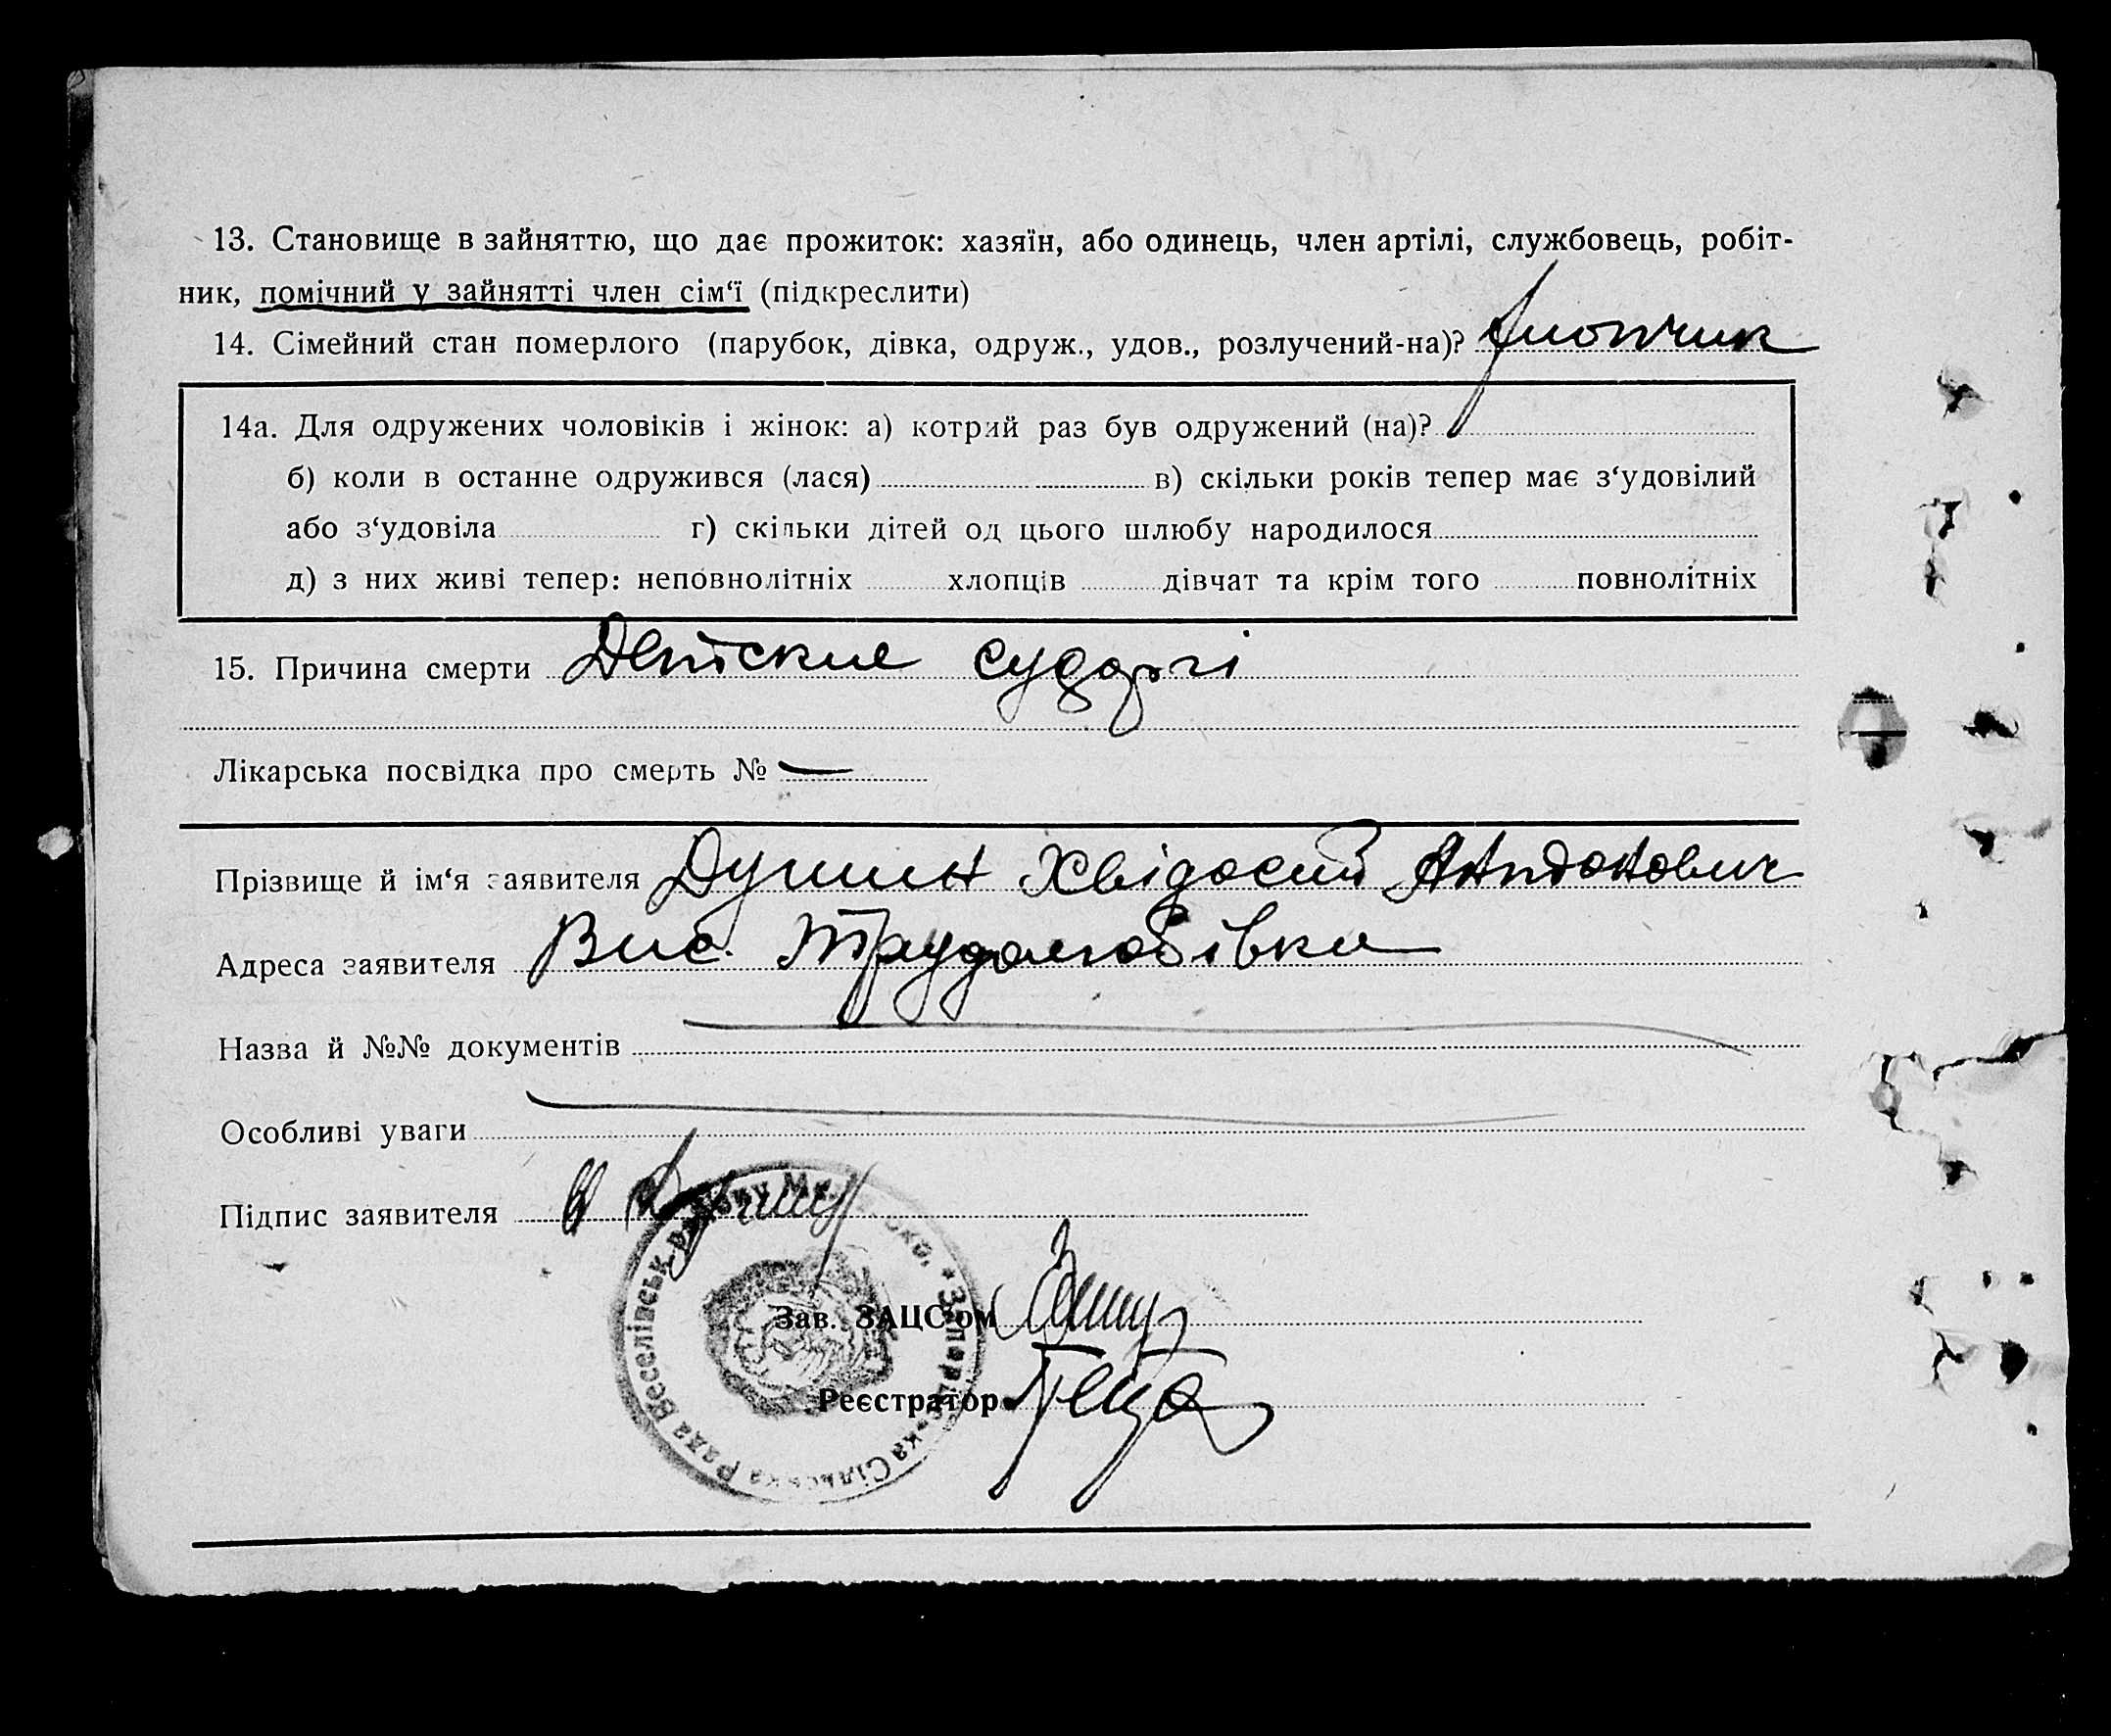 13. Становище в зайняттю, що дає прожиток: хазяїн, або одинець, член артілі, службовець, робіт-
ник, помічний у зайнятті член сім‘ї (підкреслити)
14. Сімейний стан померлого (парубок, дівка, одруж., удов., розлучений-на)? хлопчик
14а. Для одружених чоловіків і жінок: а) котрий раз був одружений (на)?
б) коли в останнє одружився (лася) в) скільки років тепер має з‘удовілий
або з‘удовіла г) скільки дітей од цього шлюбу народилося
д) з них живі тепер: неповнолітніх хлопців дівчат та крім того повнолітніх
15. Причина смерти Детские суддргі
Лікарська посвідка про смерть № —
Прізвище й ім‘я заявителя Душин Хвідосий Антонович
Адреса заявителя Вис. Трудолюбівка
Назва й №№ документів
Особливі уваги
Підпис заявителя
Зав. ЗАЦС‘ом
Реєстратор
Сільська Рада Веселівськ. району